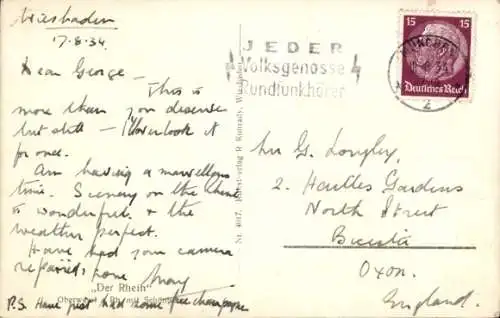 Wiesbaden
17.8.34.
Dear George –
This is
more than you deserve
but still – I'll overlook it
for once.
Am having a marvellous
time. Scenery on the Rhine
is wonderful & the
weather perfect.
Have had your camera
repaired, home
Mary
„Der Rhein“
Oberwesel a. Rh. mit Schönburg
P.S. Have just had some free champagne
Nr. 4017. Kunstverlag R. Konrady, Wiesbaden
JEDER
Volksgenosse
Rundfunkhörer
MÜNCHEN
2
15 15
Deutsches Reich
Mr G. Longley,
2. Gardens
North Street
Oxon.
England.